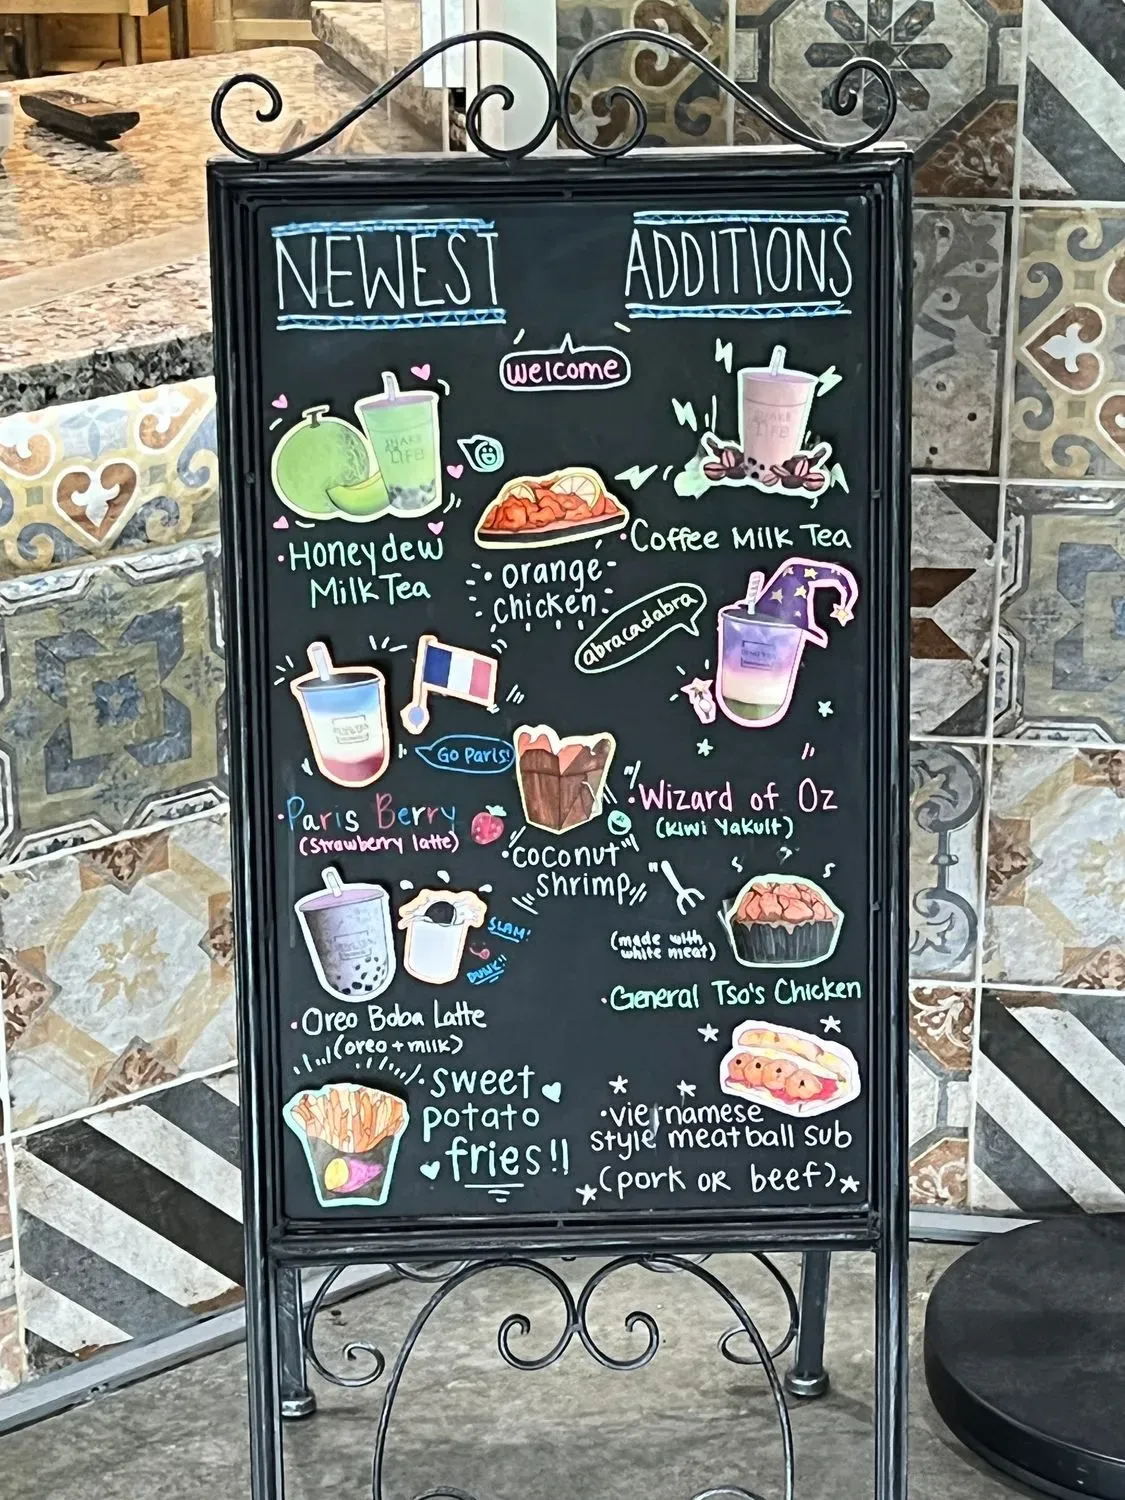 NEWEST ADDITIONS
welcome
SHAKE
LIFE
SHAKE
LIFE
• Honeydew
Milk Tea
• orange
chicken
• Coffee Milk Tea
abracadabra
Go Paris!
• Paris Berry
(strawberry latte)
• coconut
shrimp
• Wizard of Oz
(kiwi yakult)
SLAM!
DUNK!!
• Oreo Boba Latte
(oreo + milk)
(made with
white meat)
• General Tso's Chicken
• sweet
potato
fries!!
• vietnamese
style meatball sub
(pork or beef)